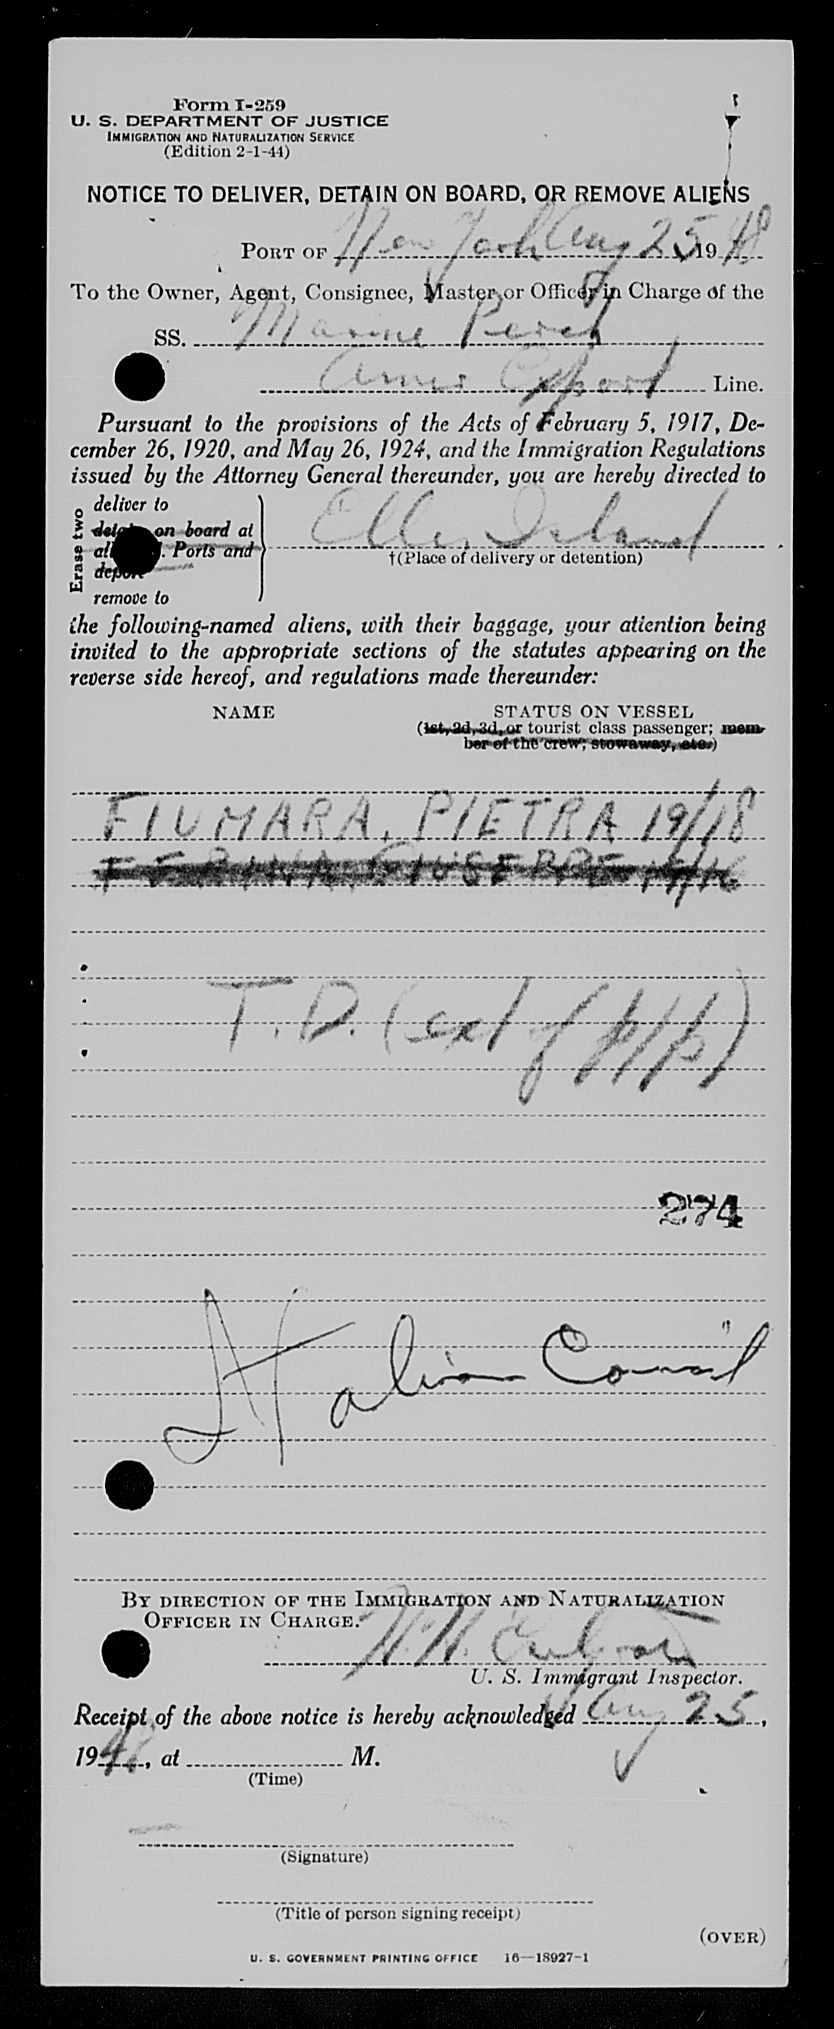 Form I-259
U. S. DEPARTMENT OF JUSTICE
IMMIGRATION AND NATURALIZATION SERVICE
(Edition 2-1-44)
NOTICE TO DELIVER, DETAIN ON BOARD, OR REMOVE ALIENS
PORT OF New York Aug 25 1948
To the Owner, Agent, Consignee, Master, or Officer in Charge of the
SS. Marine Perch
Amer Export Line.
Pursuant to the provisions of the Acts of February 5, 1917, De-
cember 26, 1920, and May 26, 1924, and the Immigration Regulations
issued by the Attorney General thereunder, you are hereby directed to
Erase two
deliver to
detain on board at
all U. S. Ports and
deport
remove to
Ellis Island
†(Place of delivery or detention)
the following-named aliens, with their baggage, your attention being
invited to the appropriate sections of the statutes appearing on the
reverse side hereof, and regulations made thereunder:
NAME STATUS ON VESSEL
(1st, 2d, 3d, or tourist class passenger; mem-
ber of the crew; stowaway, etc.)
FIUMARA, PIETRA 19/18
GIUSEPPE
T.D. (ext of p/p)
274
Italian Council
BY DIRECTION OF THE IMMIGRATION AND NATURALIZATION
OFFICER IN CHARGE.
U. S. Immigrant Inspector.
Receipt of the above notice is hereby acknowledged Aug 25,
1948, at M.
(Time)
(Signature)
(Title of person signing receipt)
(OVER)
U. S. GOVERNMENT PRINTING OFFICE 16—18927-1